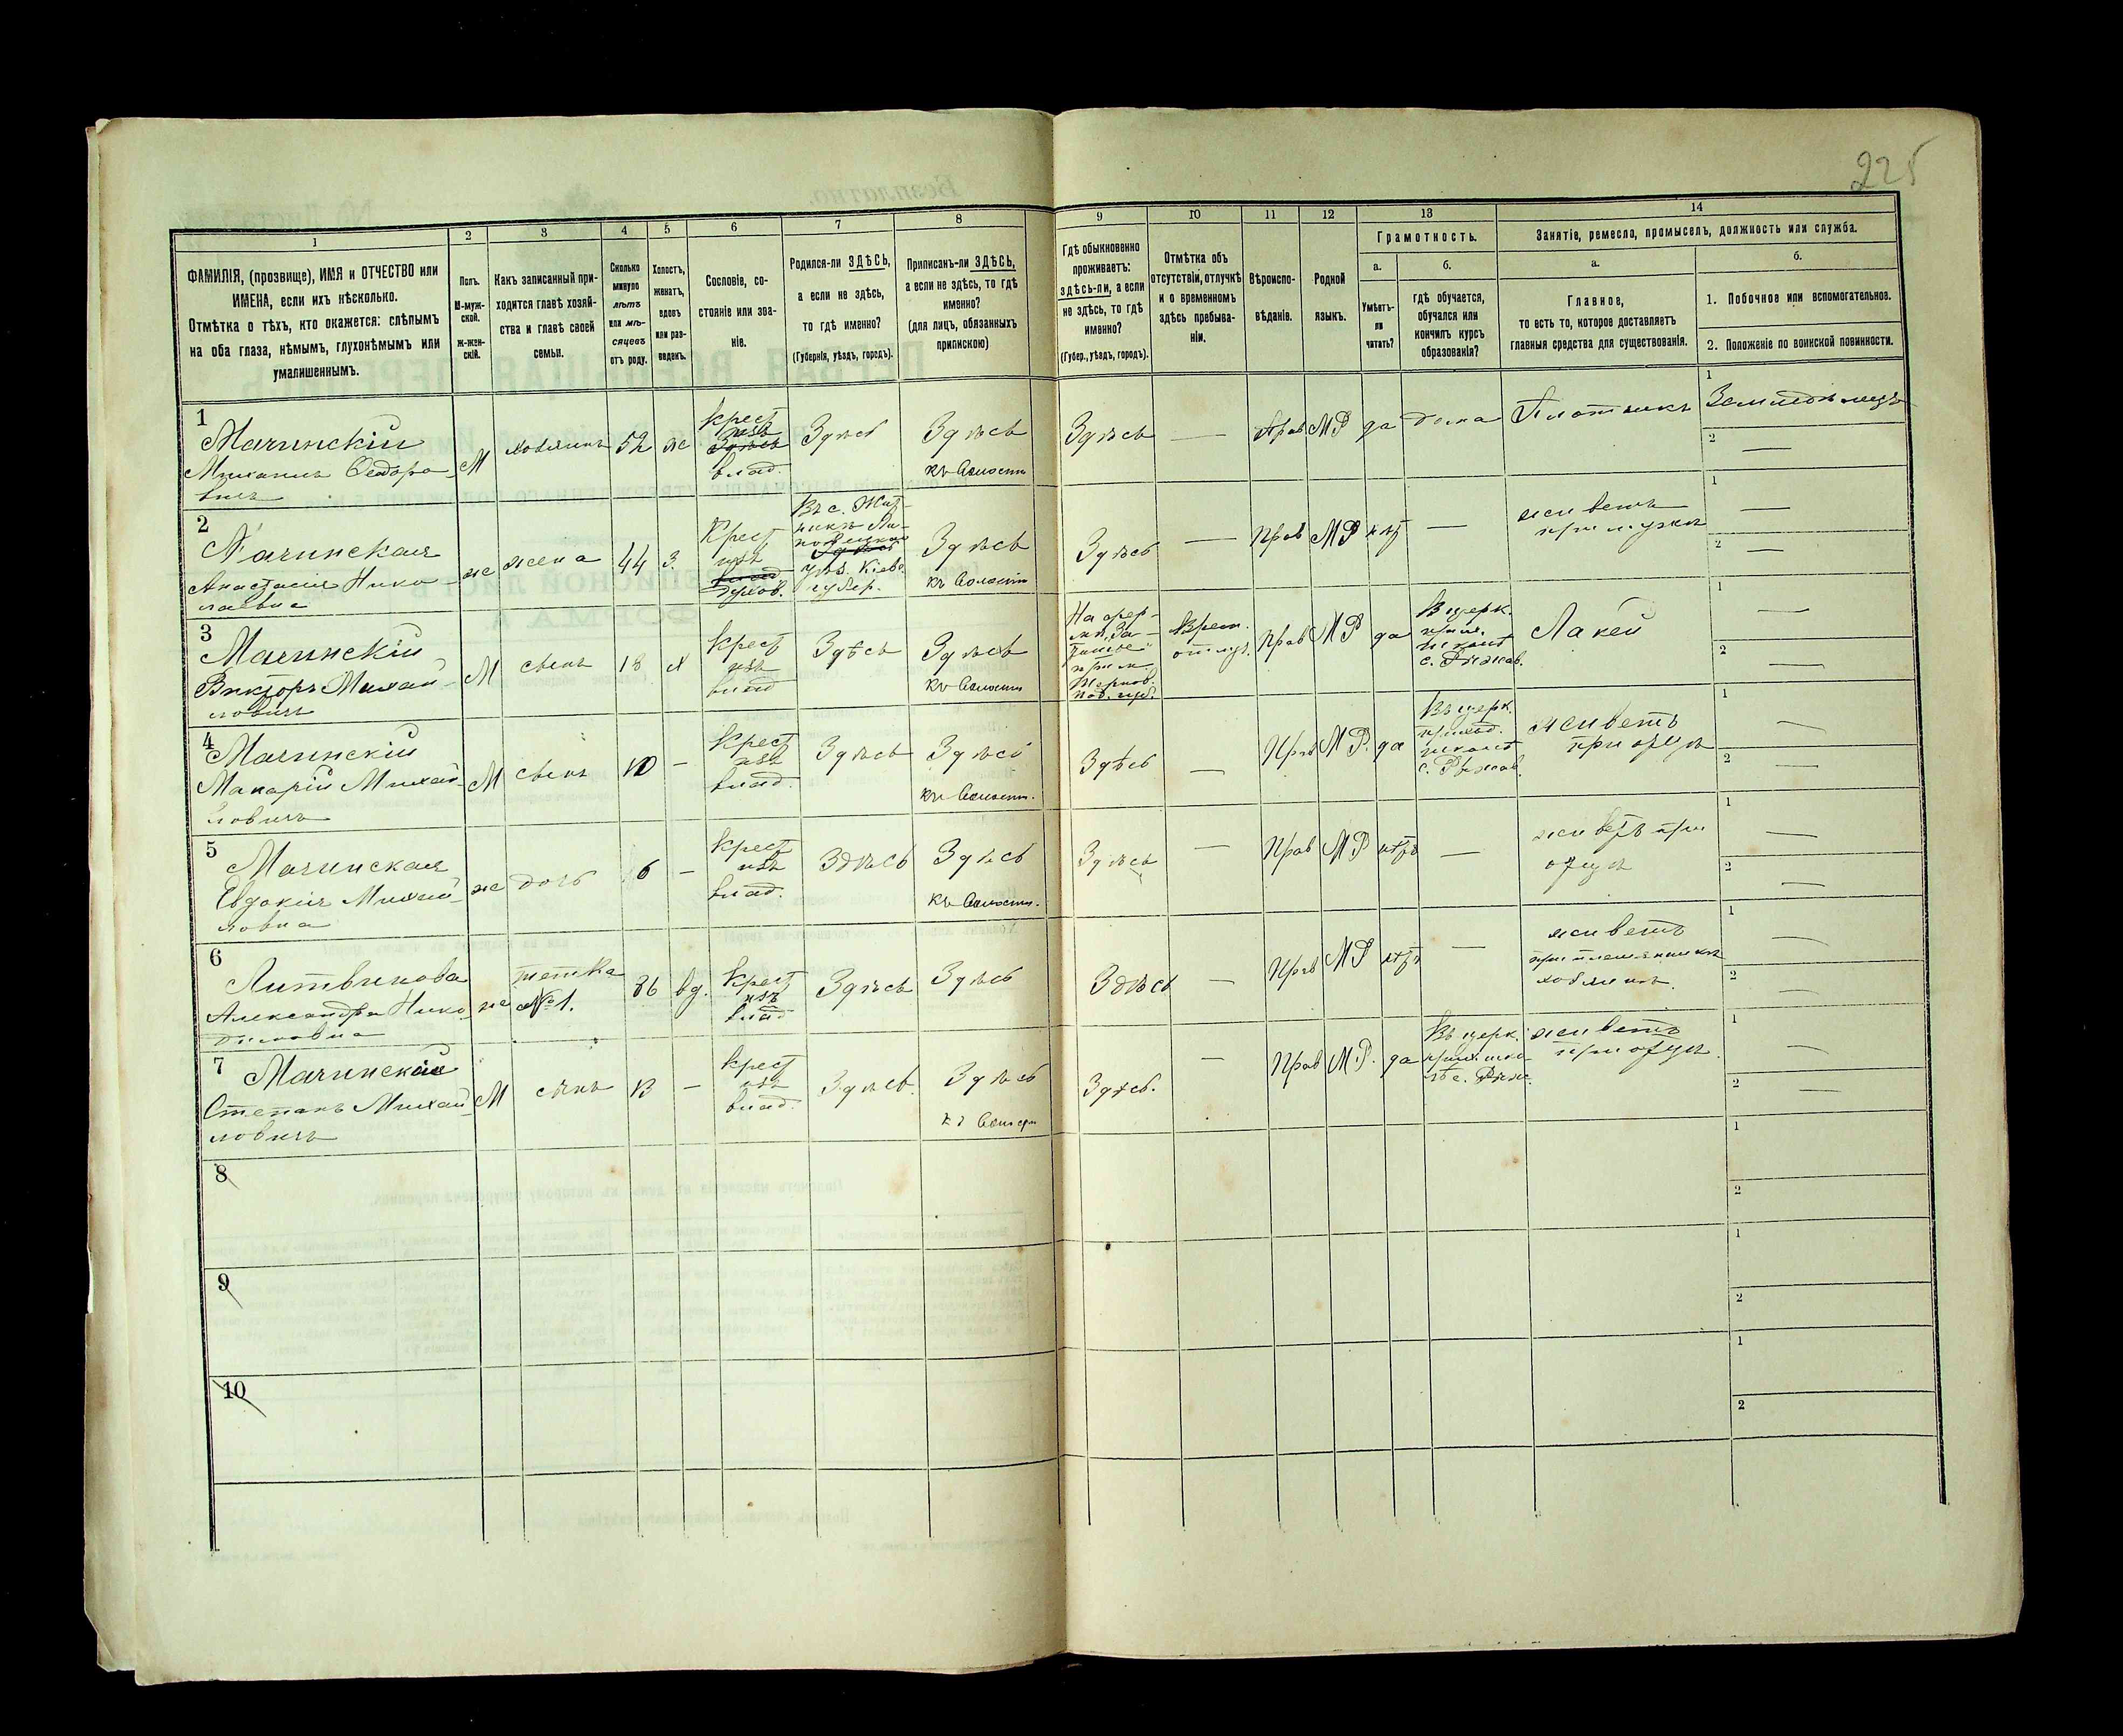 225
1
2
3
4
5
6
7
8
9
10
11
12
13
14
ФАМИЛІЯ, (прозвище), ИМЯ и ОТЧЕСТВО или
ИМЕНА, если ихъ нѣсколько.
Отмѣтка о тѣхъ, кто окажется: слѣпымъ
на оба глаза, нѣмымъ, глухонѣмымъ или
умалишеннымъ.
Полъ.
М-муж-
ской.
Ж-жен-
скій.
Какъ записанный при-
ходится главѣ хозяй-
ства и главѣ своей
семьи.
Сколько
минуло
лѣтъ
или мѣ-
сяцевъ
отъ роду.
Холостъ,
женатъ,
вдовъ
или раз-
веденъ.
Сословіе, со-
стояніе или зва-
ніе.
Родился-ли ЗДѢСЬ,
а если не здѣсь,
то гдѣ именно?
(Губернія, уѣздъ, городъ).
Приписанъ-ли ЗДѢСЬ,
а если не здѣсь, то гдѣ
именно?
(для лицъ, обязанныхъ
припискою)
Гдѣ обыкновенно
проживаетъ:
здѣсь-ли, а если
не здѣсь, то гдѣ
именно?
(Губер., уѣздъ, городъ).
Отмѣтка объ
отсутствіи, отлучкѣ
и о временномъ
здѣсь пребыва-
ніи.
Вѣроиспо-
вѣданіе.
Родной
языкъ.
Грамотность.
а.
Умѣетъ-
ли
читать?
б.
гдѣ обучается,
обучался или
кончилъ курсъ
образованія?
Занятіе, ремесло, промыселъ, должность или служба.
а.
Главное,
то есть то, которое доставляетъ
главныя средства для существованія.
б.
1. Побочное или вспомогательное.
2. Положеніе по воинской повинности.
1
Мачинскій
Михаилъ Федоро-
вичъ
М
хозяинъ
52
ж
Крест
изъ
Здѣсь
влад.
Здѣсь
Здѣсь
къ волости
Здѣсь
—
Прав
МР
да
дома
Плотникъ
1
Земледѣлецъ
2
—
2
Мачинская
Анастасія Нико-
лаевна
ж
жена
44
з.
Крест
изъ
влад
духов.
Здѣсь
уѣз. Кіев.
губер.
Здѣсь
къ волости
Здѣсь
—
Прав
МР
нѣт
—
живетъ
при мужѣ
1
—
2
—
3
Мачинскій
Викторъ Михай-
ловичъ
М
сынъ
18
х
Крест
изъ
влад
Здѣсь
Здѣсь
къ волости
Врем.
отлуч.
Прав
МР
да
В церк.
прих.
школѣ
с. Рыжав.
Лакей
1
—
2
—
4
Мачинскій
Макарій Михай-
ловичъ
М
сынъ
10
—
Крест
изъ
влад.
Здѣсь
Здѣсь
къ волости.
Здѣсь
—
Прав
МР.
да
Въ церк.
приход.
школѣ
с. Рыжав.
живетъ
при отцѣ
1
—
2
—
5
Мачинская
Евдокія Михай-
ловна
ж
дочь
6
—
Крест
изъ
влад.
Здѣсь
Здѣсь
къ волости.
Здѣсь
—
Прав
МР
нѣтъ
—
живетъ при
отцѣ
1
—
2
—
6
Литвинова
Александра Нико-
димовна
ж
тетка
№ 1.
86
вд.
Крест
изъ
влад
Здѣсь
Здѣсь
Здѣсь
—
Прав
МР
нѣтъ
—
живетъ
при племянникѣ
хозяинѣ.
1
—
2
—
7
Мачинскій
Степанъ Михай-
ловичъ
М
сынъ
13
—
Крест
изъ
влад.
Здѣсь.
Здѣсь
къ волости
Здѣсь.
—
Прав
МР.
да
Въ церк.
прих. шко-
лѣ с. Рыж.
живетъ
при отцѣ.
1
—
2
—
8
1
2
9
1
2
10
1
2